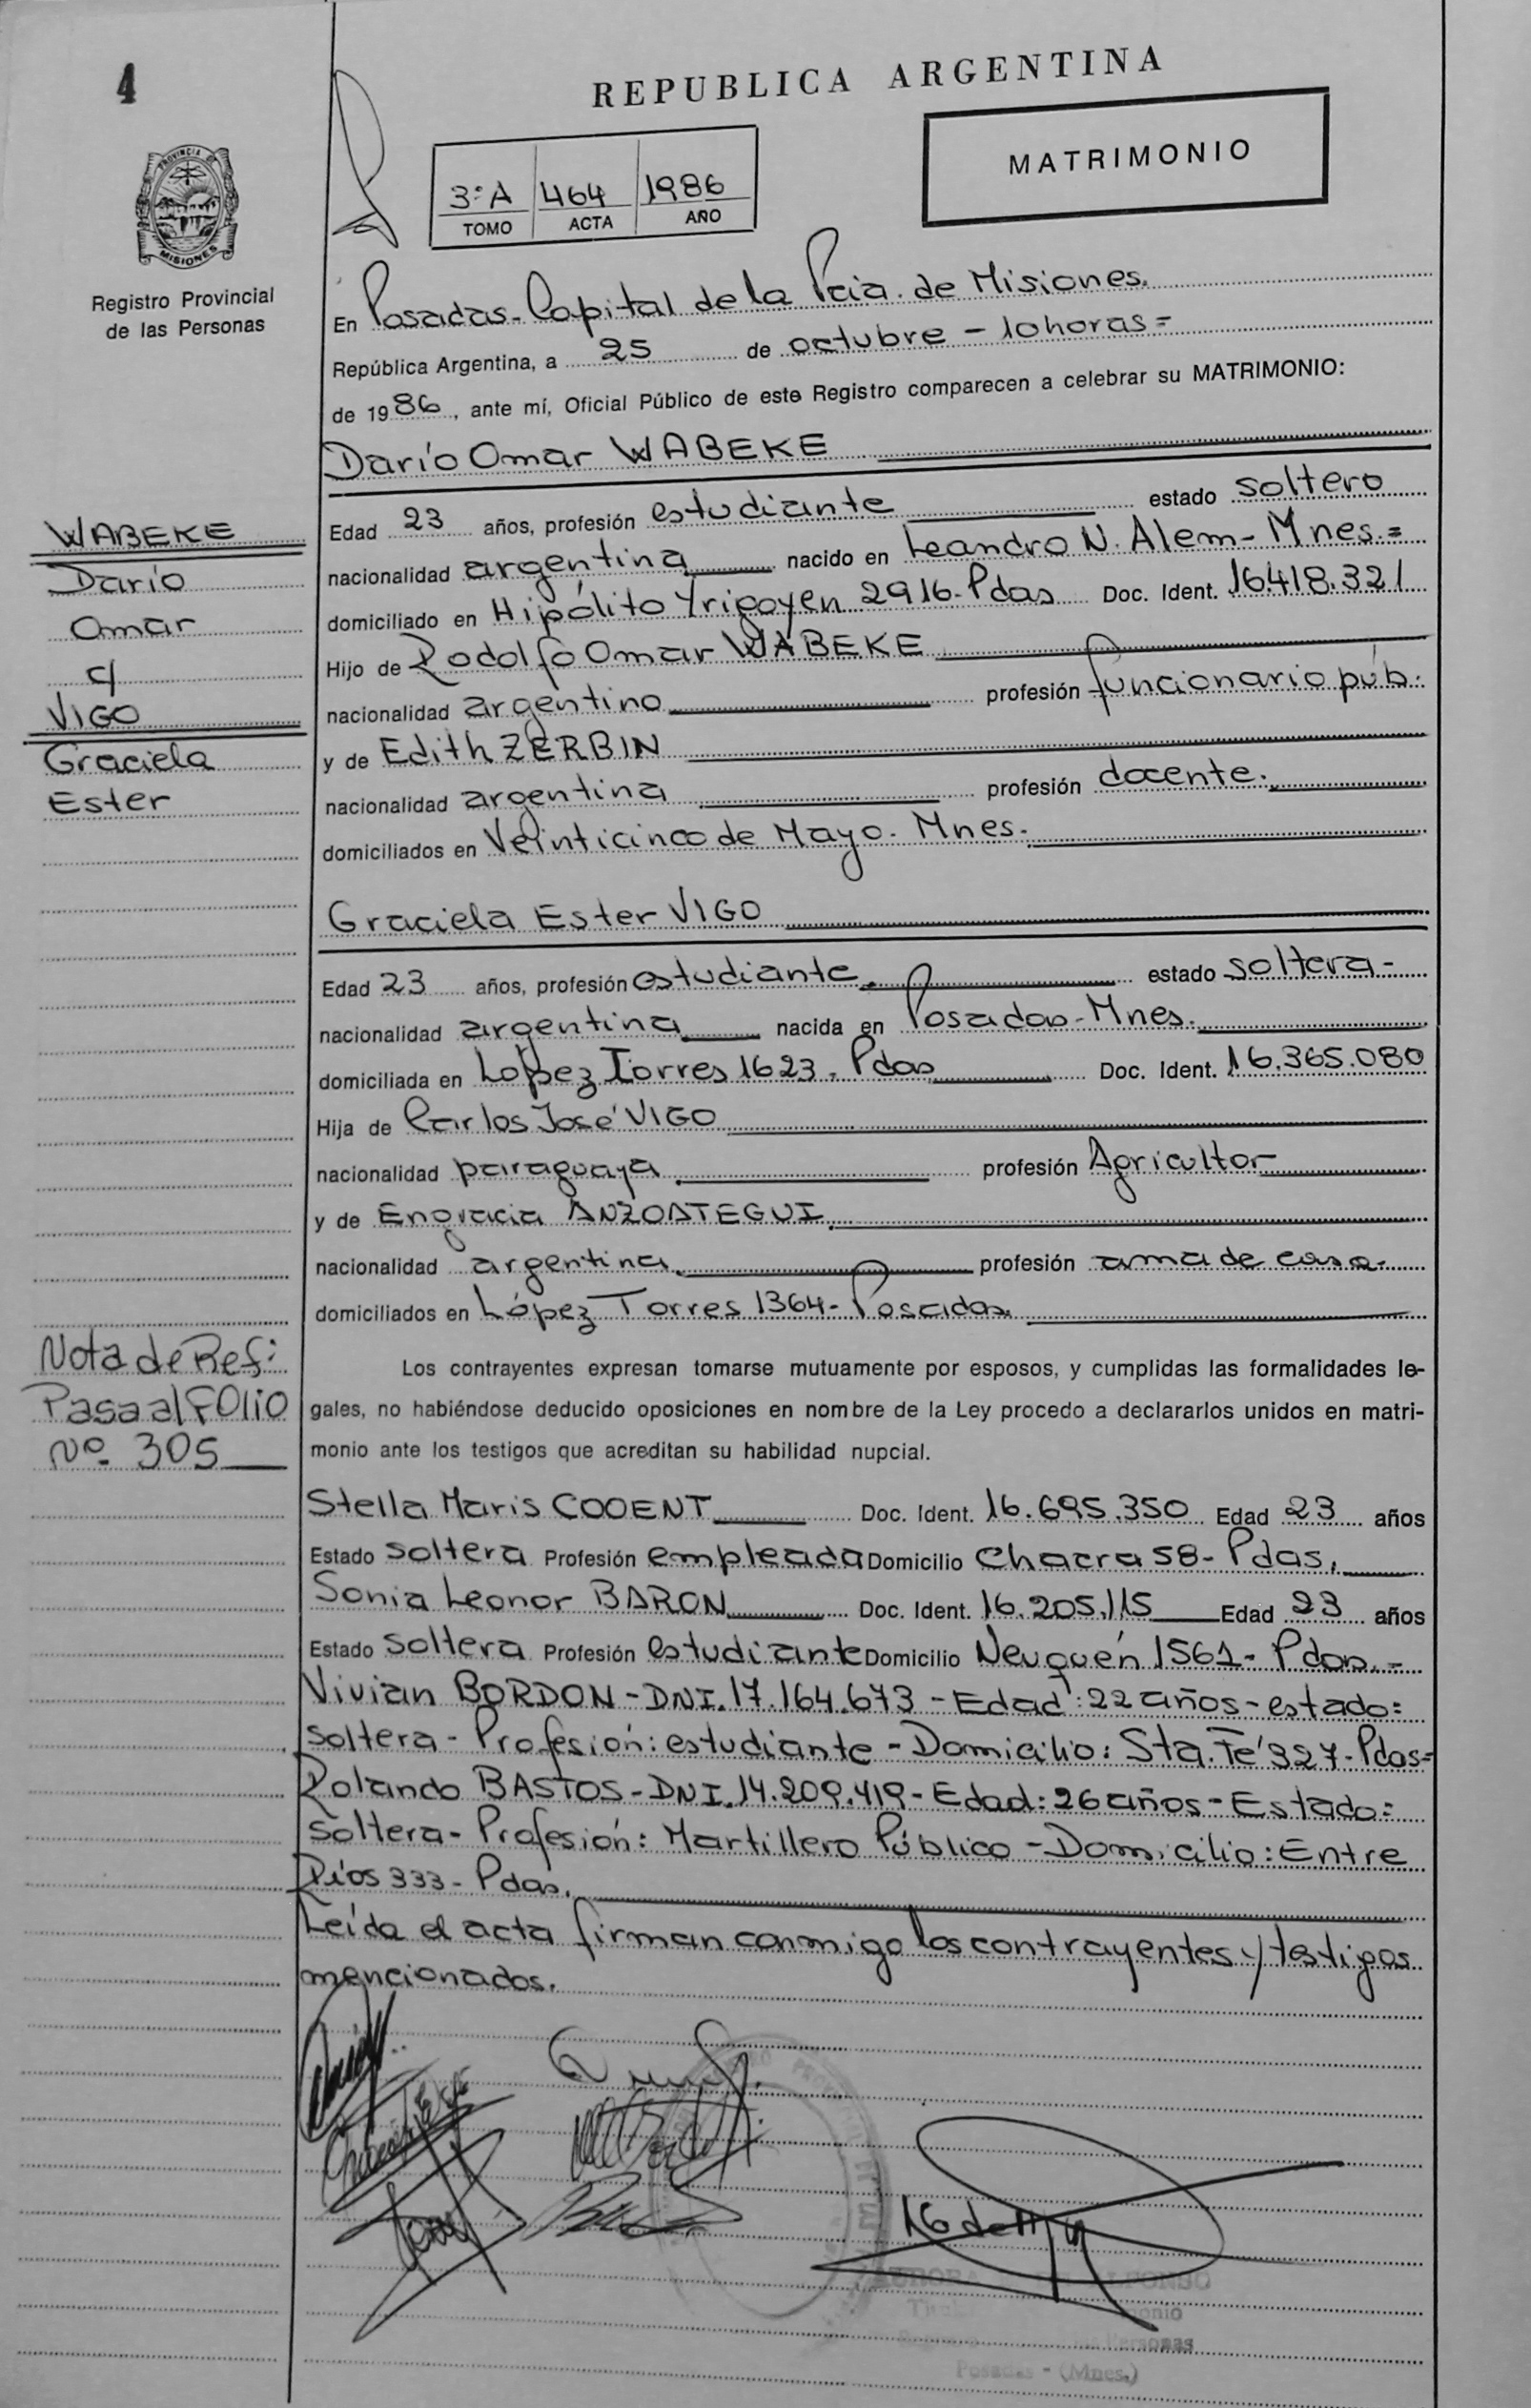 4
REPUBLICA ARGENTINA
MATRIMONIO
3ºA 464 1986
TOMO ACTA AÑO
PROVINCIA DE
MISIONES
Registro Provincial
de las Personas
En Posadas-Capital de la Pcia. de Misiones.
República Argentina, a 25 de octubre - 10 horas =
de 1986, ante mí, Oficial Público de este Registro comparecen a celebrar su MATRIMONIO:
Darío Omar WABEKE
Edad 23 años, profesión estudiante estado soltero
nacionalidad argentina nacido en Leandro N. Alem- Mnes.=
domiciliado en Hipólito Yrigoyen 2916-Pdas Doc. Ident. 16.418.321
Hijo de Rodolfo Omar WABEKE
nacionalidad argentino profesión funcionario púb.
y de Edith ZERBIN
nacionalidad argentina profesión docente.
domiciliados en Veinticinco de Mayo. Mnes.
WABEKE
Darío
Omar
c/
VIGO
Graciela
Ester
Graciela Ester VIGO
Edad 23 años, profesión estudiante. estado soltera-
nacionalidad argentina nacida en Posadas-Mnes.
domiciliada en López Torres 1623. Pdas Doc. Ident. 16.365.080
Hija de Carlos José VIGO
nacionalidad paraguaya profesión Agricultor
y de Engracia ANZOATEGUI
nacionalidad argentina profesión ama de casa.
domiciliados en López Torres 1364-Posadas.
Nota de Ref:
Pasa al FOlio
Nº 305
Los contrayentes expresan tomarse mutuamente por esposos, y cumplidas las formalidades le-
gales, no habiéndose deducido oposiciones en nombre de la Ley procedo a declararlos unidos en matri-
monio ante los testigos que acreditan su habilidad nupcial.
Stella Maris COOENT Doc. Ident. 16.695.350 Edad 23 años
Estado soltera Profesión empleada Domicilio Chacra 58- Pdas.
Sonia Leonor BARON Doc. Ident. 16.205.115 Edad 23 años
Estado soltera Profesión estudiante Domicilio Neuquén 1561- Pdas.-
Vivian BORDON-DNI.17.164.673-Edad:22 años-estado:
soltera- Profesión: estudiante-Domicilio: Sta. Fé 327-Pdas=
Rolando BASTOS-DNI.14.209.419-Edad:26 años-Estado:
soltera- Profesión: Martillero Público-Domicilio: Entre
Ríos 333- Pdas.
Leída el acta firman conmigo los contrayentes y testigos
mencionados.
Personas
Posadas - (Mnes.)